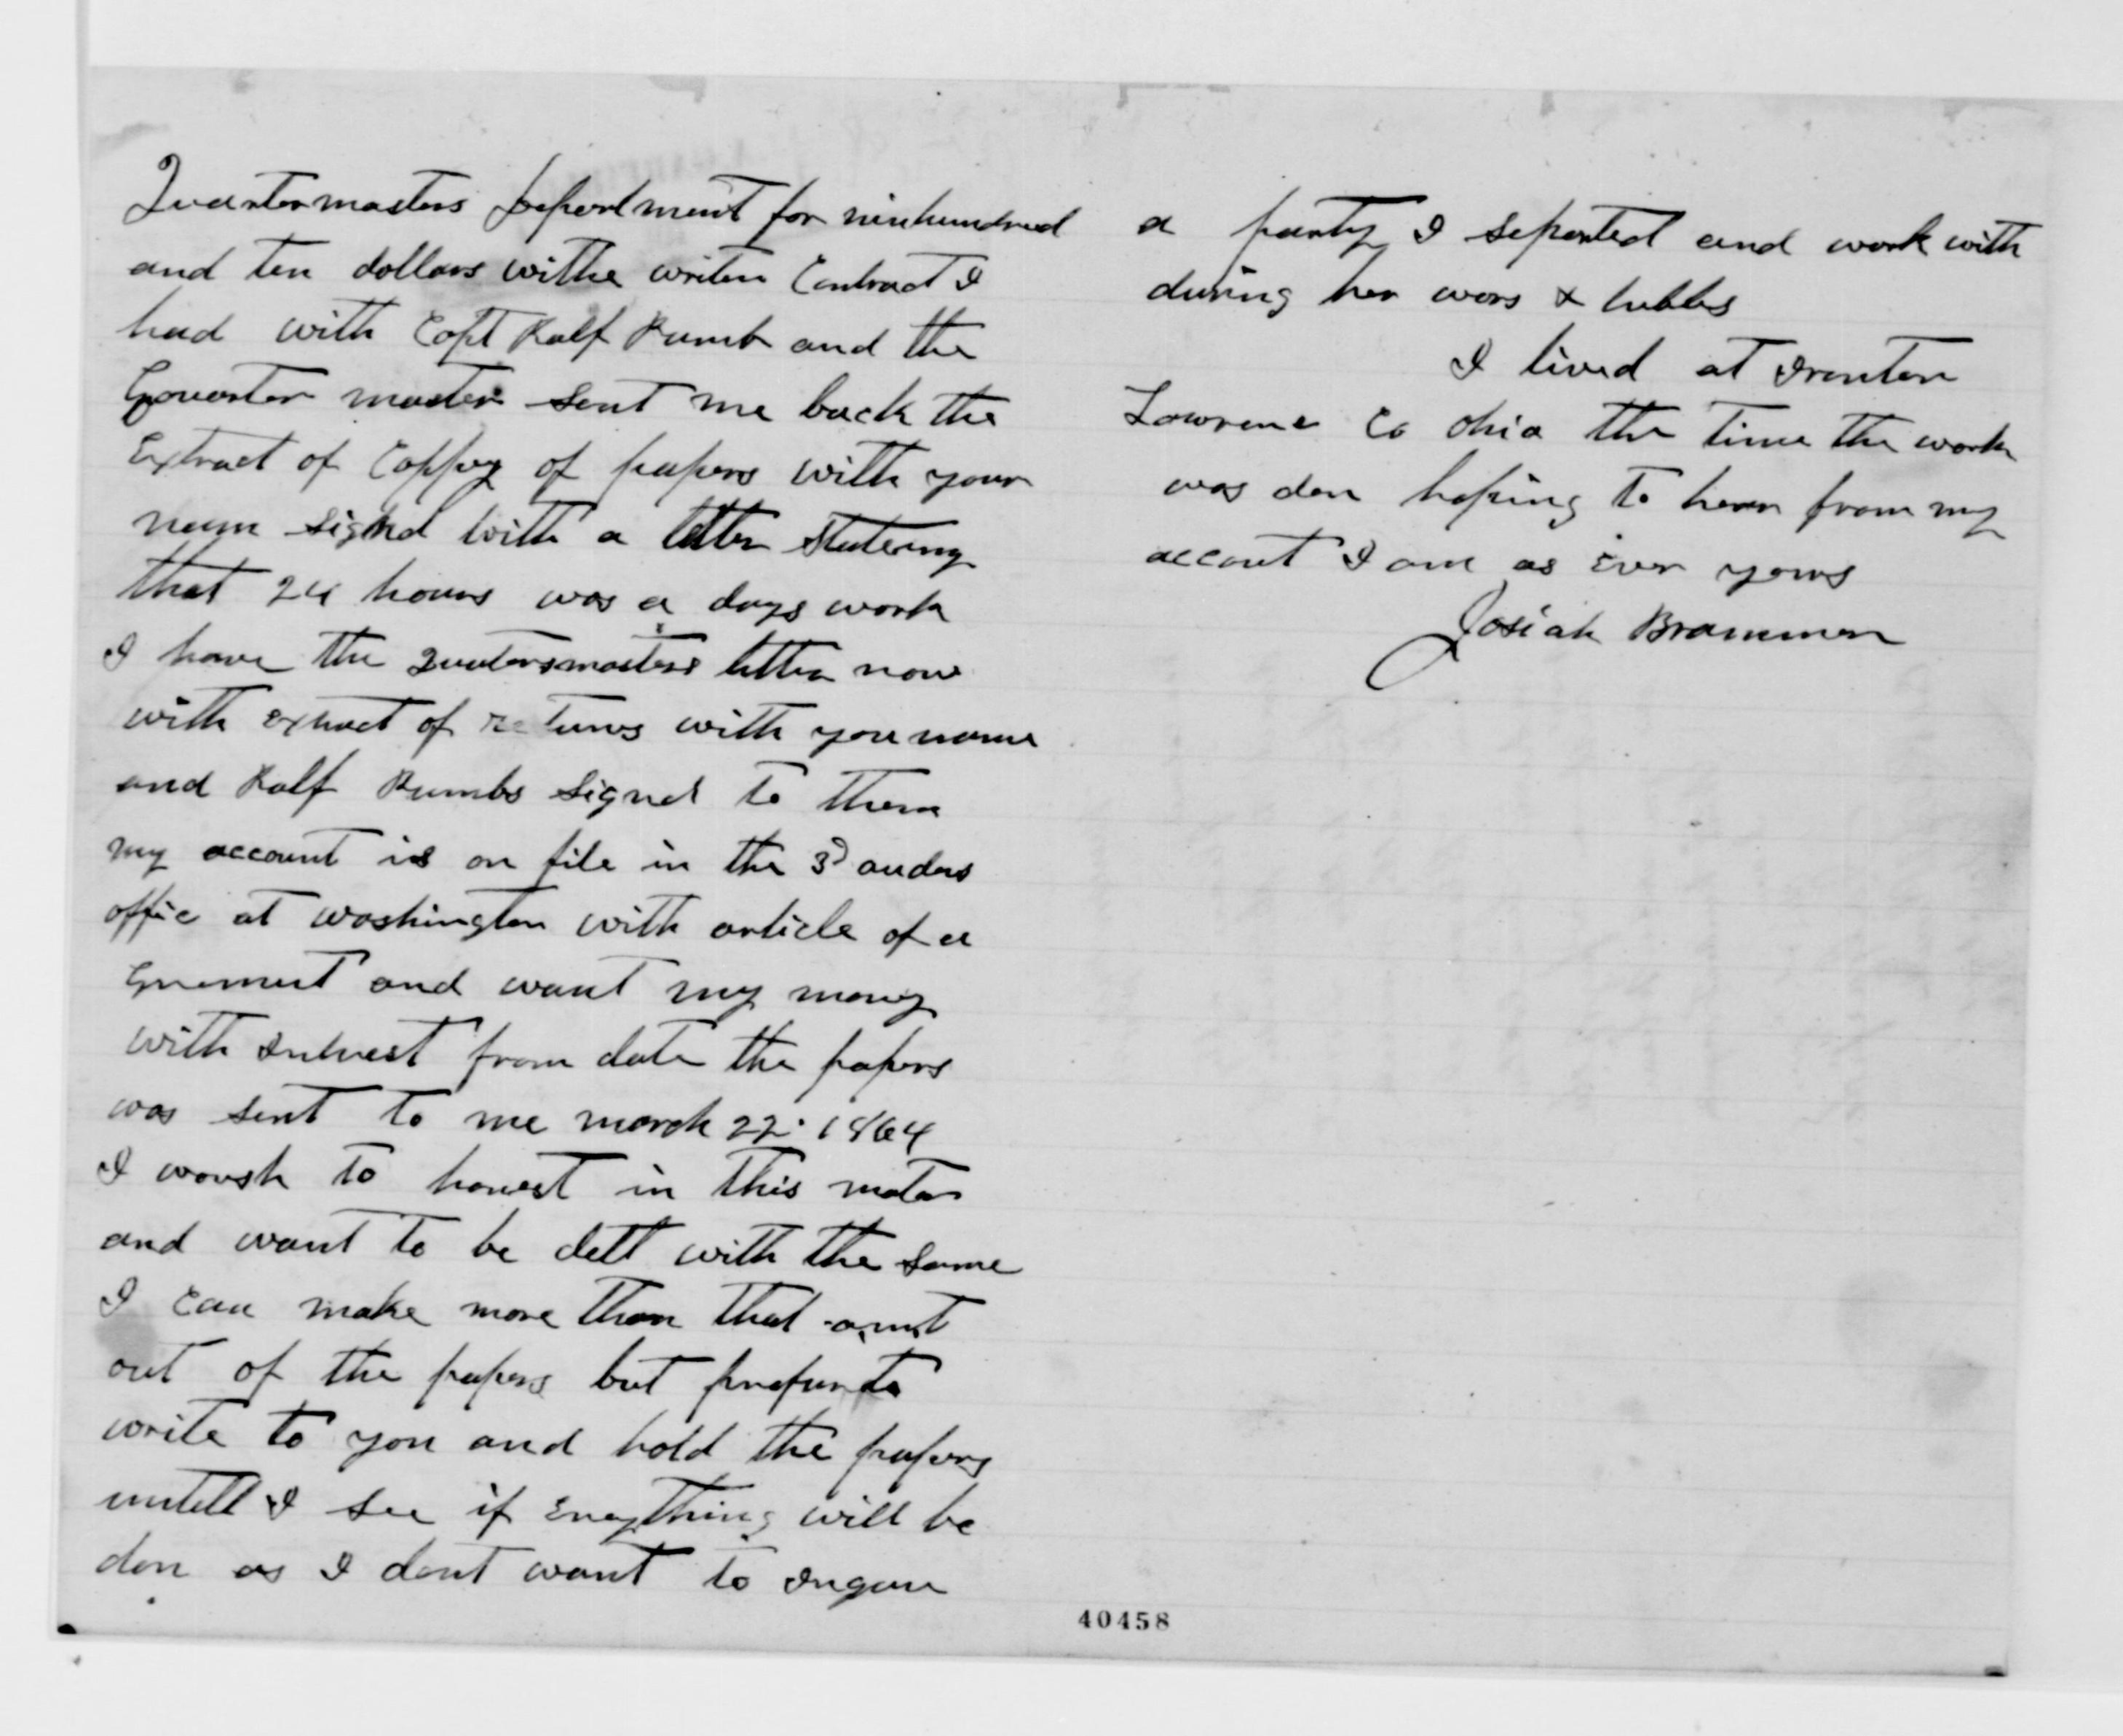 Quartermasters Department for ninhundred
and ten dollars withe writen Contract I
had with Capt Ralf Rumb and the
Qouarter master sent me back the
Extract of Coppy of papers with your
name signed with a letter statering
that 24 hours was a days work
I have the Quatersmasters letter now
with extract of returns with you name
and Ralf Rumbs signed to them
my account is on file in the 3d auders
office at washington with article of a
Greement and want my money
with Interest from date the papers
was sent to me march 22. 1864
I woush to honest in this mater
and want to be delt with the same
I can make more than that amt
out of the papers but prefur to
write to you and hold the papers
untill I see if enything will be
don as I dont want to Ingure
a party I seported and work with
during her wors &
I lived at Ironton
Lawrence Co ohio the time the work
was don hoping to hear from my
accout I am as Ever yours
Josiah Brammer
40458